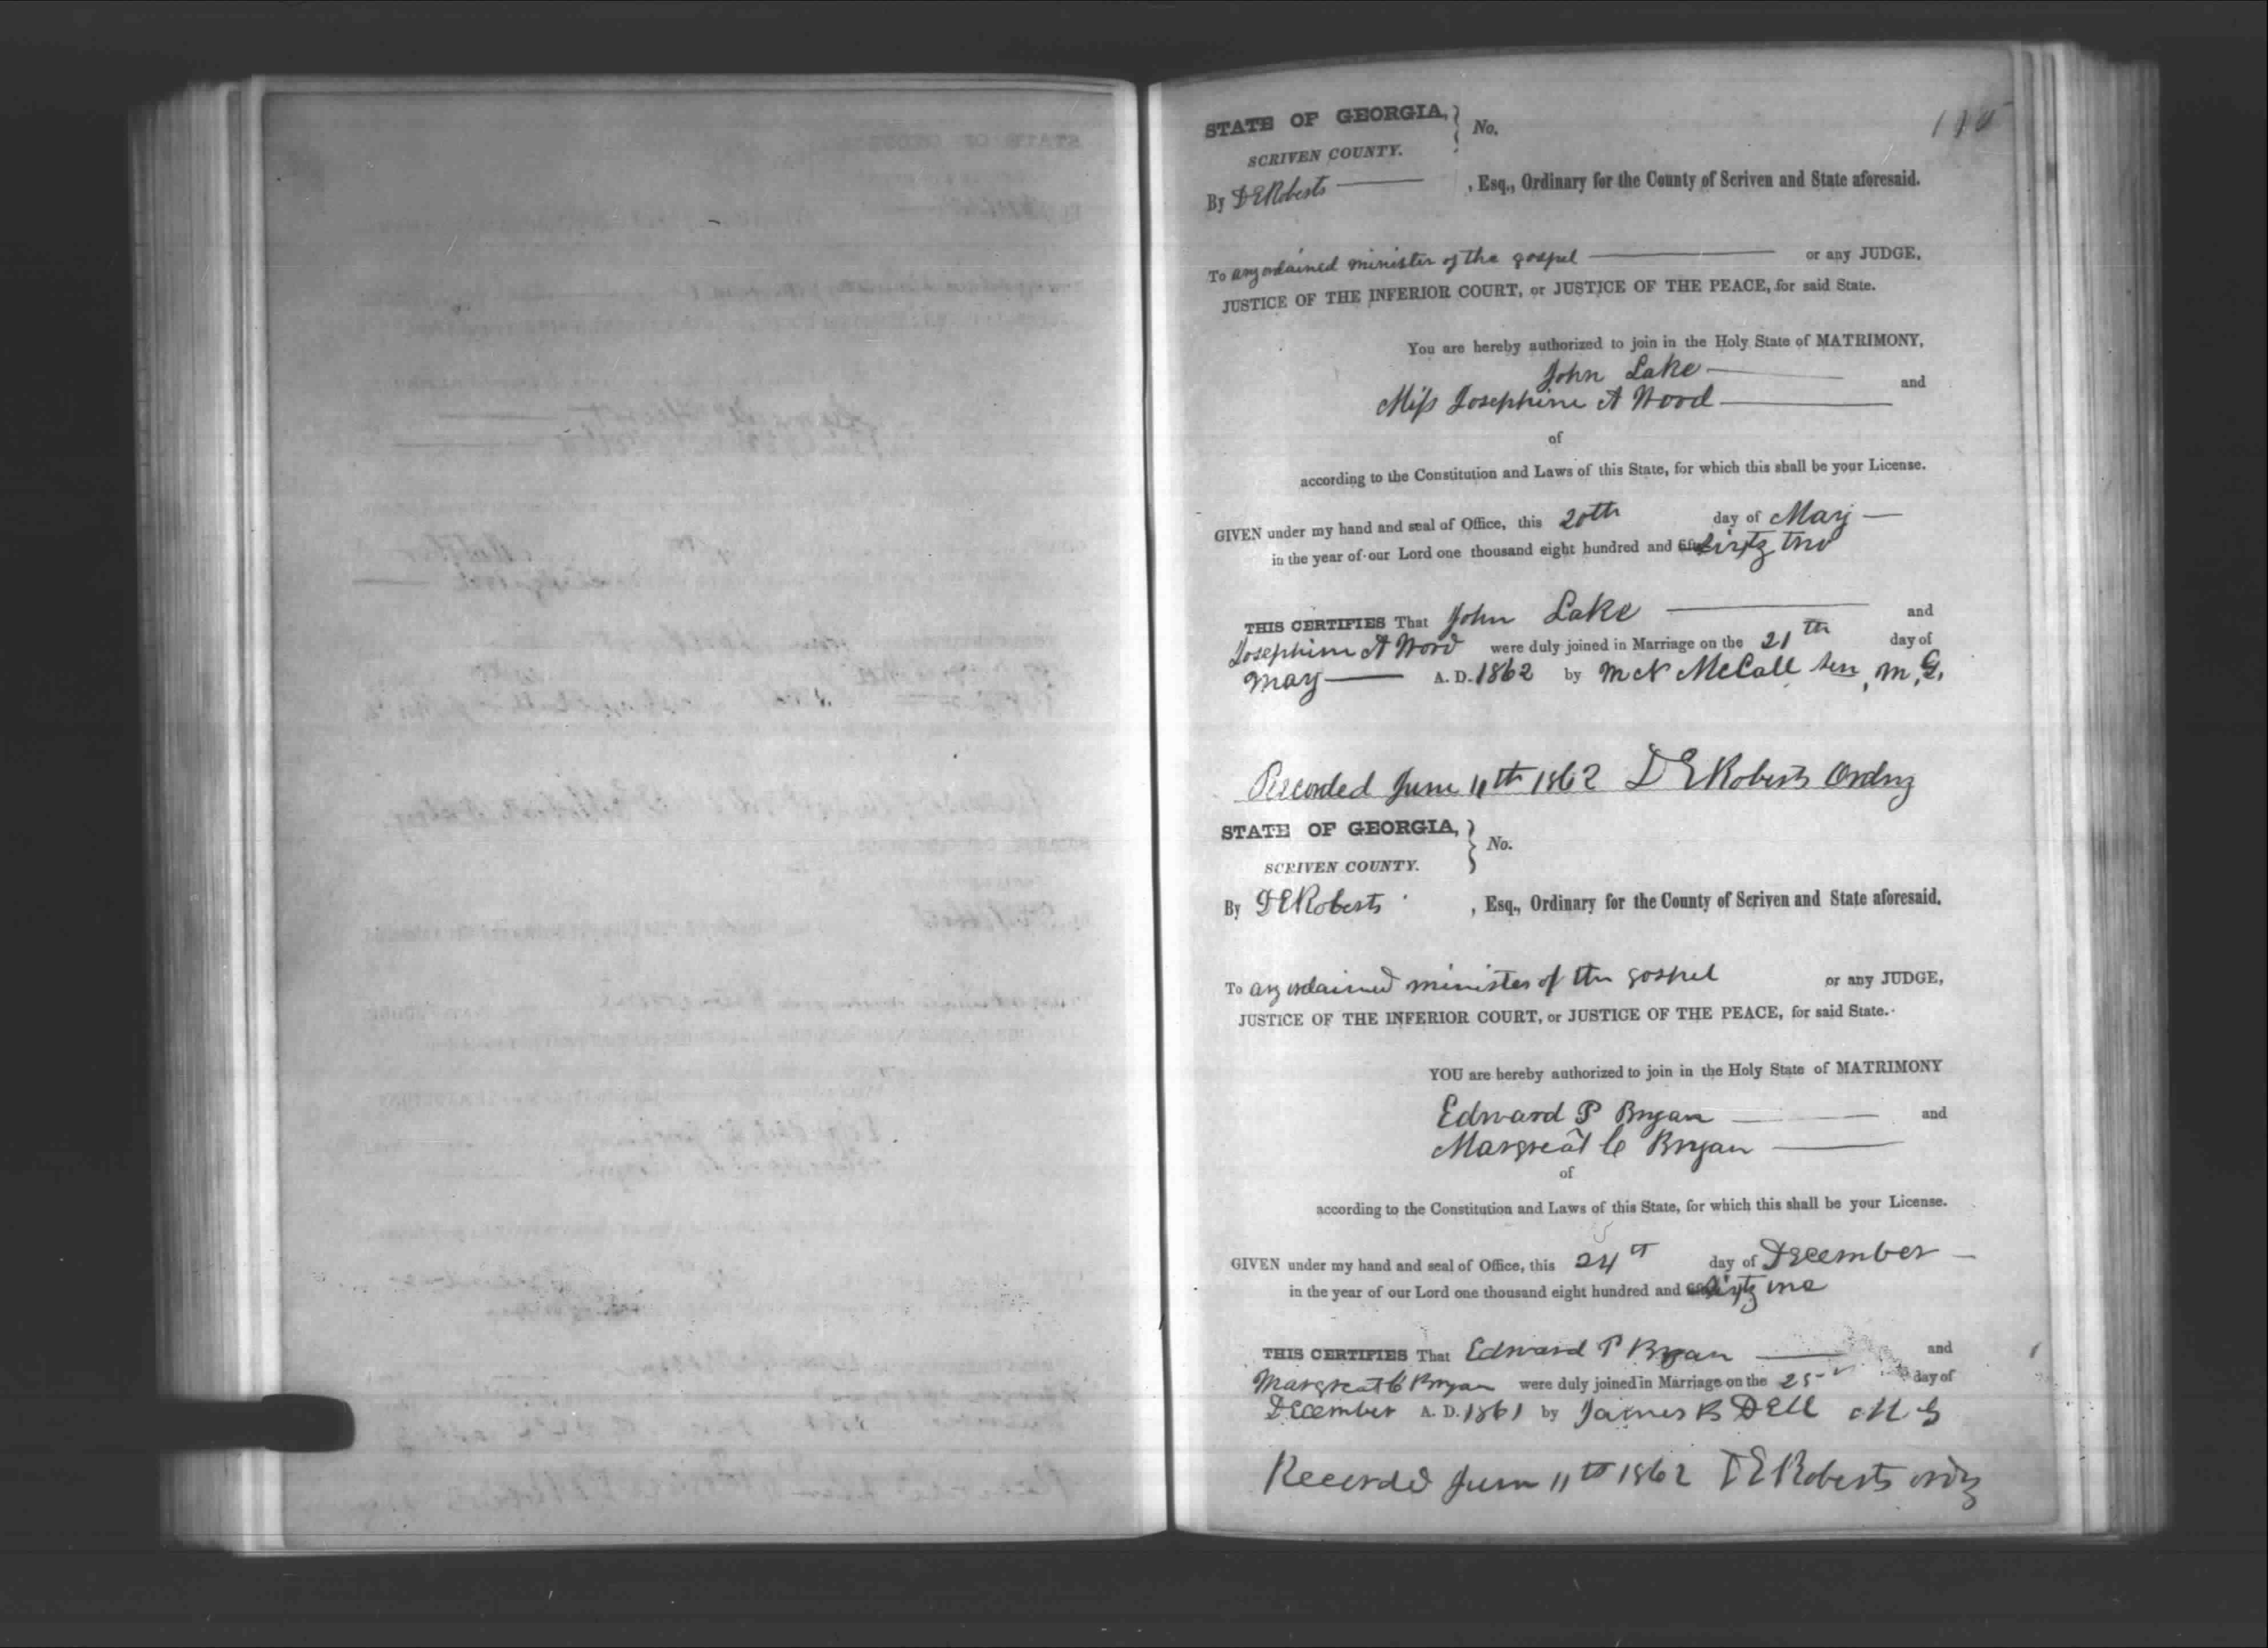 STATE OF GEORGIA, } No.
SCRIVEN COUNTY.
By D E Roberts , Esq., Ordinary for the County of Scriven and State aforesaid.
To any ordained minister of the gospel or any JUDGE,
JUSTICE OF THE INFERIOR COURT, or JUSTICE OF THE PEACE, for said State.
You are hereby authorized to join in the Holy State of MATRIMONY,
John Lake and
Miss Josephine A Wood
of
according to the Constitution and Laws of this State, for which this shall be your License.
GIVEN under my hand and seal of Office, this 20th day of May
in the year of our Lord one thousand eight hundred and sixty two
THIS CERTIFIES That John Lake and
Josephine A Wood were duly joined in Marriage on the 21th day of
May A. D. 1862 by M N McCall Sen, M, G,
Recorded June 11th 1862 D E Roberts Ordny
STATE OF GEORGIA, } No.
SCRIVEN COUNTY.
By D E Roberts , Esq., Ordinary for the County of Scriven and State aforesaid.
To any ordained minister of the gospel or any JUDGE,
JUSTICE OF THE INFERIOR COURT, or JUSTICE OF THE PEACE, for said State.
YOU are hereby authorized to join in the Holy State of MATRIMONY
Edward P Bryan and
Margreat C Bryan
of
according to the Constitution and Laws of this State, for which this shall be your License.
GIVEN under my hand and seal of Office, this 24th day of December
in the year of our Lord one thousand eight hundred and sixty one
THIS CERTIFIES That Edward P Bryan and
Margreat C Bryan were duly joined in Marriage on the 25 day of
December A. D. 1861 by James B Dell M G
Recorded June 11th 1862 D E Roberts ordy